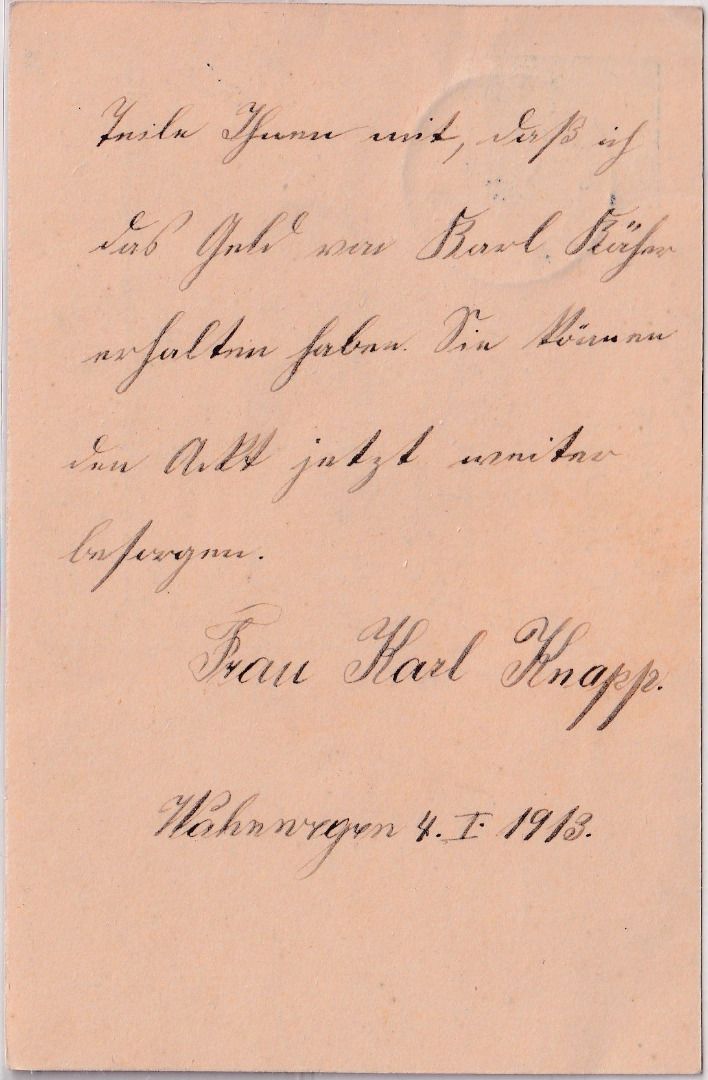 Teile Ihnen mit, daß ich
das Geld von Karl Käher
erhalten haben. Sie können
den Ackt jetzt weiter
besorgen.
Frau Karl Knapp.
4. I. 1913.